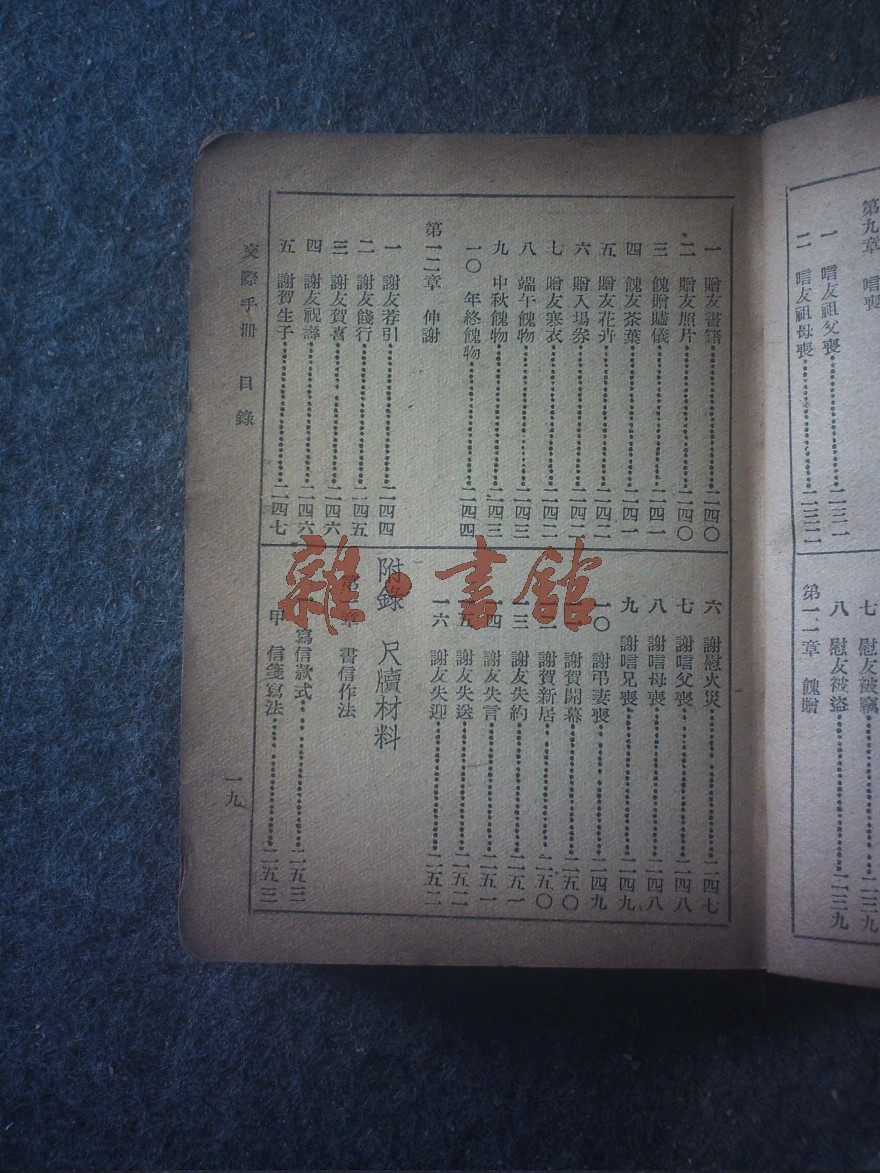 第九章 唁喪
一 唁友祖父喪……二三二
二 唁友祖母喪……二三二
七 慰友被竊……二三九
八 慰友被盜……二三九
第一一章 餽贈
一 贈友書籍……二四〇
二 贈友照片……二四〇
三 餽贈贐儀……二四一
四 餽友茶葉……二四一
五 贈友花卉……二四二
六 贈入場券……二四二
七 贈友寒衣……二四二
八 端午餽物……二四三
九 中秋餽物……二四三
一〇 年終餽物……二四四
第一二章 伸謝
一 謝友荐引……二四四
二 謝友餞行……二四五
三 謝友賀喜……二四六
四 謝友祝壽……二四六
五 謝賀生子……二四七
六 謝慰火災……二四七
七 謝唁父喪……二四八
八 謝唁母喪……二四八
九 謝唁兄喪……二四九
一〇 謝弔妻喪……二四九
一一 謝賀開幕……二五〇
一二 謝賀新居……二五〇
一三 謝友失約……二五一
一四 謝友失言……二五一
一五 謝友失送……二五二
一六 謝友失迎……二五二
附錄 尺牘材料
第一章 書信作法
一 寫信款式……二五三
甲 信箋寫法……二五三
交際手册 目錄
一九
雜·書館